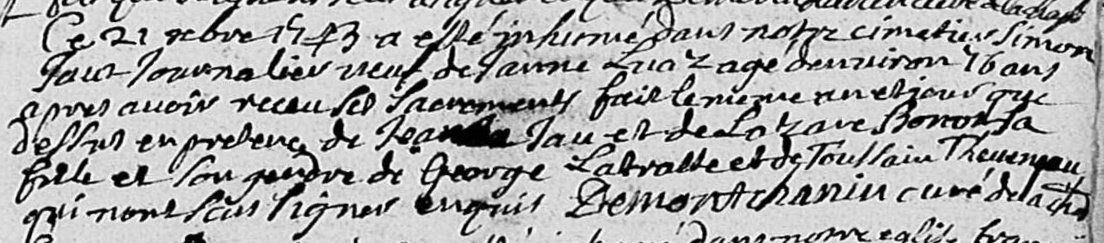 Ce 21 xbre 1743 a esté inhumé dans notre cimetier Simon
Taut Journalier veuf de Janne age denviron 76 ans
apres avoir receu ses Sacrements fait le meme an et jour que
dessus en presence de Jeanne Tau et de Lazare Bonnot sa
fille et son gendre de George Latratte et de Toussain Theveneau
qui nont scus signer enquis Demontchanin curé de la
dans notre eglise